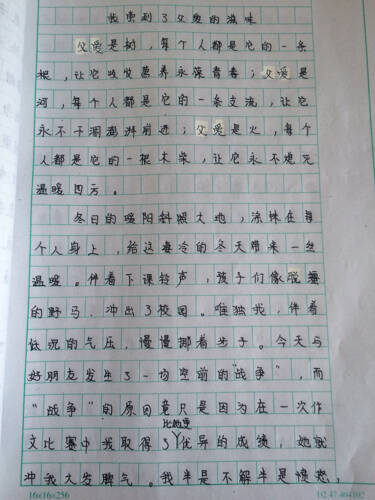 我尝到了父爱的滋味
父爱是树，每个人都是它的一条
根，让它吸收营养永葆青春；父爱是
河，每个人都是它的一条支流，让它
永不干涸澎湃前进；父爱是火，每个
人都是它的一根木柴，让它永不熄灭
温暖四方。
冬日的暖阳斜照大地，涂抹在每
个人身上，给这寒冷的冬天带来一丝
温暖。伴着下课铃声，孩子们像脱缰
的野马，冲出了校园。唯独我，伴着
低沉的气压，慢慢挪着步子。今天与
好朋友发生了一场空前的“战争”，而
“战争”的原因竟只是因为在一次作
比她更
文比赛中我取得了优异的成绩，她就
冲我大发脾气。我半是不解半是愤怒，
16x16=256